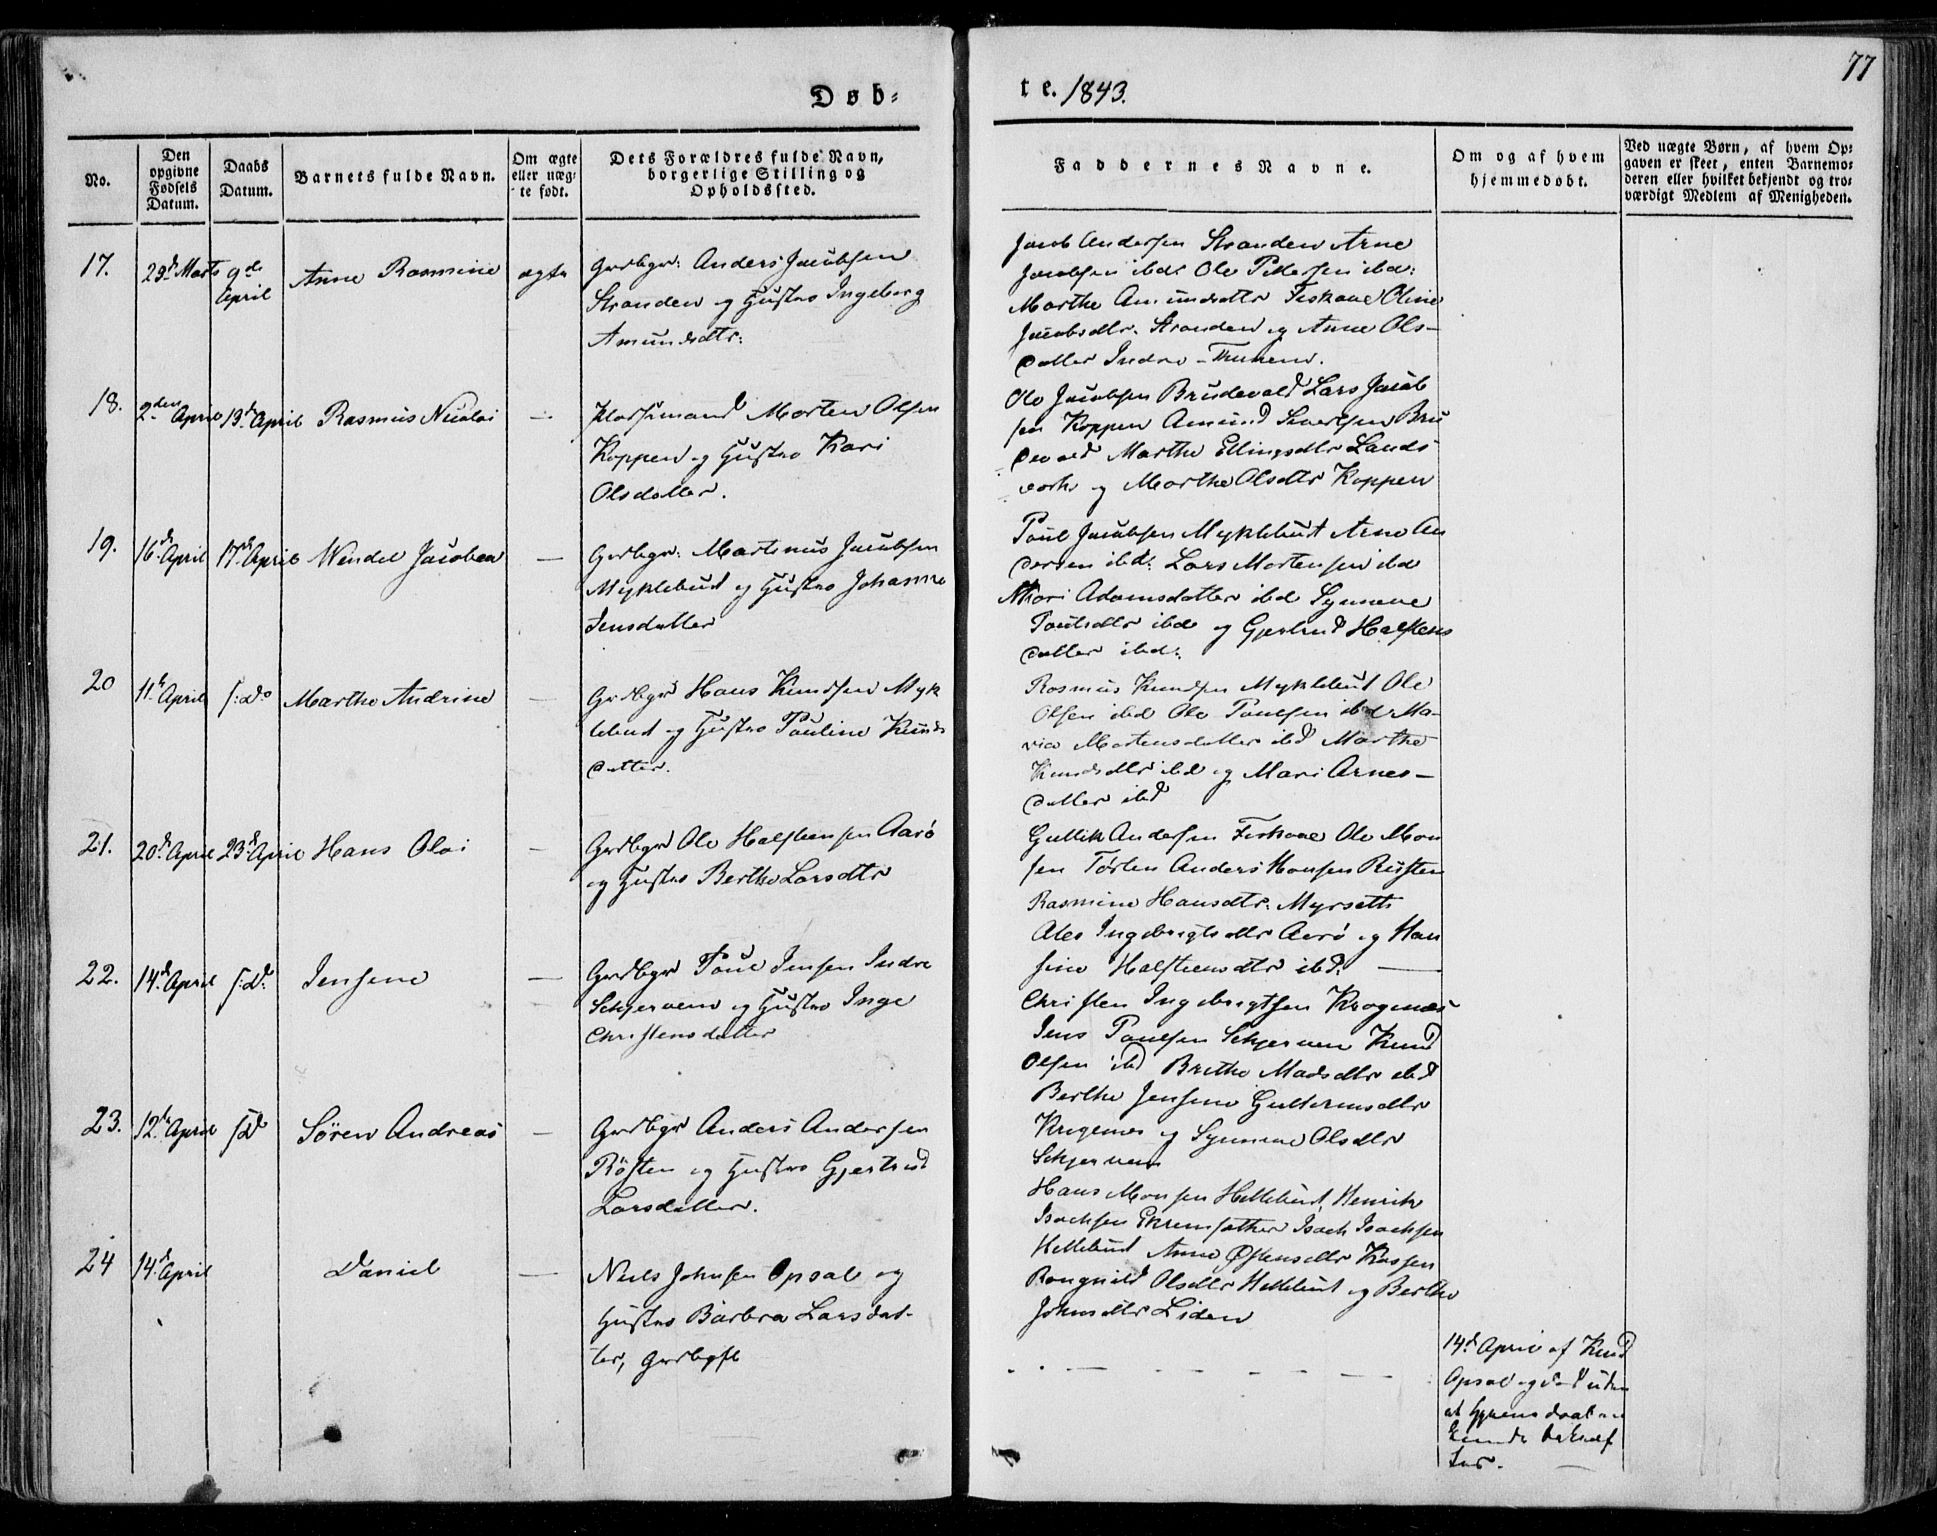 77
Døb-
te. 1843.
No.
Den opgivne Fødsels Datum.
Daabs Datum.
Barnets fulde Navn.
Om ægte eller uægte født.
Dets Forældres fulde Navn, borgerlige Stilling og Opholdssted.
Faddernes Navne.
Om og af hvem hjemmedøbt.
Ved uægte Børn, af hvem Opgaven er skeet, enten Barnemoderen eller hvilket bekjendt og troværdigt Medlem af Menigheden.
17.
29d Marts
9de April
Anne Rasmine
ægte
Grdbgr: Anders Jacobsen
Stranden og Hustro Ingeborg
Amundsdtr:
Jacob Andersen Stranden Arne
Jacobsen ibd: Ole Pettersen ibd:
Marthe Amundsdtr Fiskaae Oline
Jacobsdtr. Stranden og Anne Ols-
datter Indre-
18.
2den April
13d April
Rasmus Nicolai
—
Morten Olsen
Koppen og Hustro Kari
Olsdatter.
Ole Jacobsen Brudevold Lars Jacob
sen Koppen Amund Sivertsen Bru
devold Marthe Ellingsdtr Lands
værk og Marthe Olsdtr Koppen
19.
16d April
17d April
Wendel Jacobea
—
Grdbgr: Martinus Jacobsen
Myklebust og Hustro Johanne
Jensdatter
Poul Jacobsen Myklebust Arne An
dersen ibd: Lars Mortensen ibd
Mari Adamsdatter ibd Synneve
Poulsdtr ibd og Gjertrud Halstens
datter ibd:
20
11t April
s: D:
Marthe Andrine
—
Grdbgr Hans Knudsen Myk
lebust og Hustro Pauline Knuds
datter.
Rasmus Knudsen Myklebust Ole
Olsen ibd Ole Poulsen ibd Ma-
ria Mortensdatter ibd Marthe
Knudsdtr ibd og Mari Arnes-
datter ibd
21.
20d April
23d April
Hans Olai
—
Grdbgr Ole Halstensen Aarø
og Hustro Berthe Larsdtr
Gullik Andersen Fiskaae Ole Mon
sen Tørlen Anders Hansen Røsten
Rasmine Hansdtr: Myrseth
Ales Ingebrigtsdtr Aarø og Han
sine Halstensdtr ibd: —
22.
14d April
s: D:
Jensine
—
Grdbgr Poul Jensen Indre
Schjerven og Hustro Inge
Christensdatter
Christen Ingebrigtsen Krogenæs
Jens Poulsen Schjerven Knud
Olsen ibd Brithe Madsdtr ibd
Berthe Jensine Guttormsdtr
Krogenes og Synneve Olsdtr
Schjerven
23.
12te April
s: D
Søren Andreas
—
Grdbgr Anders Andersen
Røsten og Hustro Gjertrud
Larsdatter.
Hans Monsen Hellebust, Henrik
Isachsen Ekremsæther Isach Isachsen
Hellebust Anne Østensdtr Kossen
Rangnild Olsdtr Hellebust og Berthe
Johnsdtr Liden
24
14d April
Daniel
—
Niels Johnsen Opsal og
Hustro Barbra Larsdat-
ter, Grdbgflk
14d April af Knud
Opsal og død uden
at Hjemmedaaben
kunde bekræf
tes. —